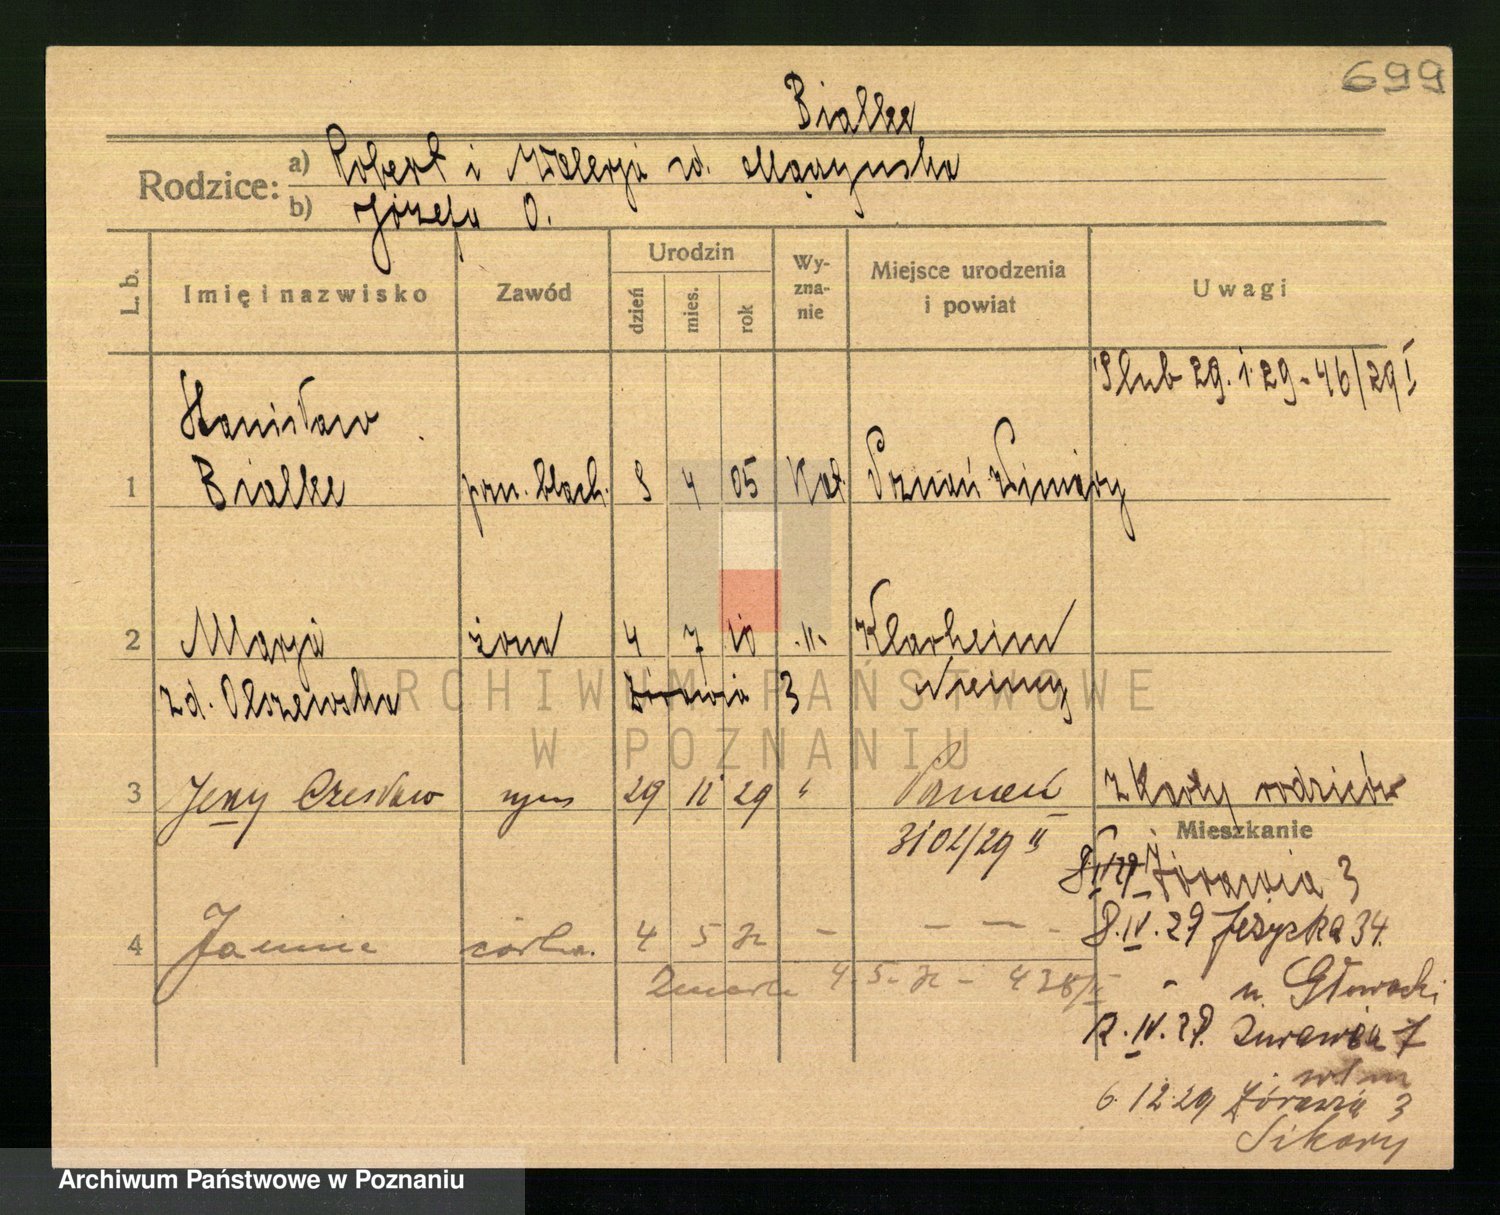 699
Bialke
Rodzice: a) Robert i Walerja zd. Mączyńska
b) Józefa O.
L. b. Imię i nazwisko Zawód Urodzin dzień mies. rok Wyznanie Miejsce urodzenia i powiat Uwagi
Ślub 29.1.29 - 46/29 I
Stanisław
1 Bialke pom. blach. 8 4 05 Kat. Poznań Winiary
2 Marja żona 4 7 10 -"- Klarheim
zd. Olszewska Żórawia 3 Niemcy
3 Jerzy Czesław syn 29 11 29 " Poznań z Karty rodziców
3102/29 II
Mieszkanie
Żórawia 3
4 Janina córka 4 5 - - -
8.IV.29 Jeżycka 34.
Zmarła 4.5. - 428/II
" u. Głowacki
12.IV.29. Żurawia 7
6.12.29 Żórawia 3
Sikory
ARCHIWUM PAŃSTWOWE
W POZNANIU
Archiwum Państwowe w Poznaniu